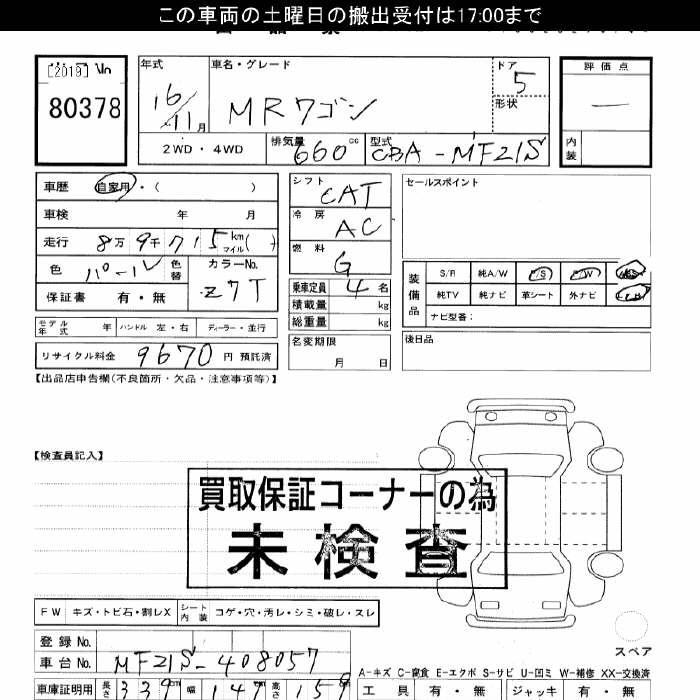 この車両の土曜日の搬出受付は17:00まで
[2019] No
80378
年式 16/11月
車名・グレード MRワゴン
ドア 5
形状
評価点 —
内装
2WD・4WD
排気量 660cc
型式 CBA-MF21S
車歴 自家用・( )
車検 年 月
走行 8万9千715km マイル( )
色 パール 色替
カラーNo. Z7T
保証書 有・無
シフト CAT
冷房 AC
燃料 G
乗車定員 4名
積載量 kg
総重量 kg
名変期限 月 日
セールスポイント
装備品
S/R 純A/W P/S P/W
純TV 純ナビ 革シート 外ナビ
ナビ型番:
後日品
モデル年式 年 ハンドル 左・右 ディーラー・並行
リサイクル料金 9670円 預託済
【出品店申告欄(不良箇所・欠品・注意事項等)】
【検査員記入】
買取保証コーナーの為
未検査
FW キズ・トビ石・割レX シート内装 コゲ・穴・汚レ・シミ・破レ・スレ
登録No.
車台No. MF21S-408057
スペア
A-キズ C-腐食 E-エクボ S-サビ U-凹ミ W-補修 XX-交換済
車庫証明用 長さ 339cm 幅 147cm 高さ 159
工具 有・無 ジャッキ 有・無